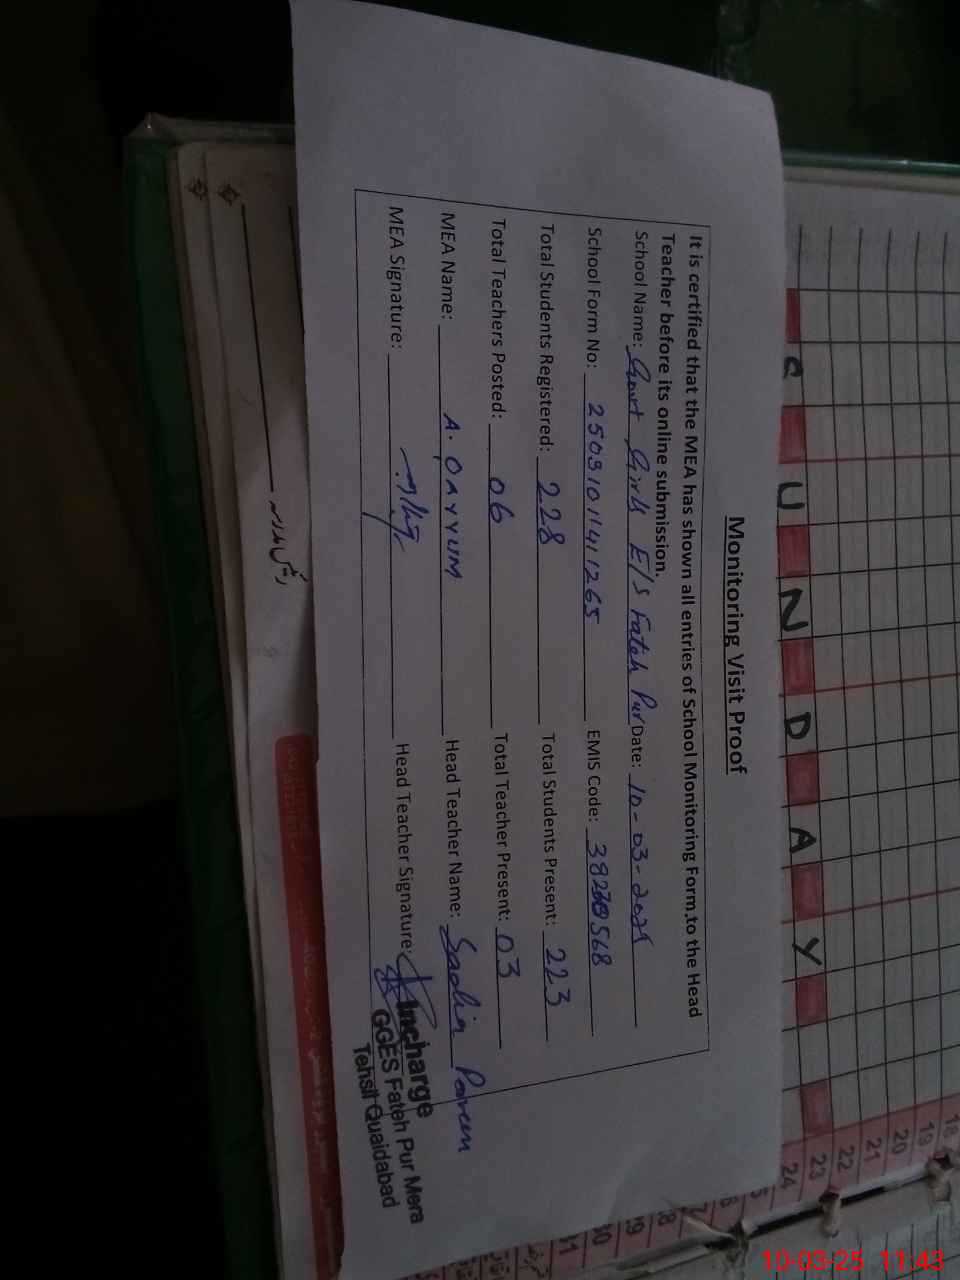 Monitoring Visit Proof
It is certified that the MEA has shown all entries of School Monitoring Form,to the Head
Teacher before its online submission.
School Name: Govt Girls E/S Fateh Pur Date: 10-03-2025
School Form No: 25031011411265 EMIS Code: 568
Total Students Registered: 228 Total Students Present: 223
Total Teachers Posted: 06 Total Teacher Present: 03
MEA Name: A. QAYYUM Head Teacher Name: Sadia Parveen
MEA Signature: Head Teacher Signature:
Incharge
GGES Fateh Pur Mera
Tehsil Quaidabad
SUNDAY
18
19
20
21
22
23
24
10-03-25 11:43